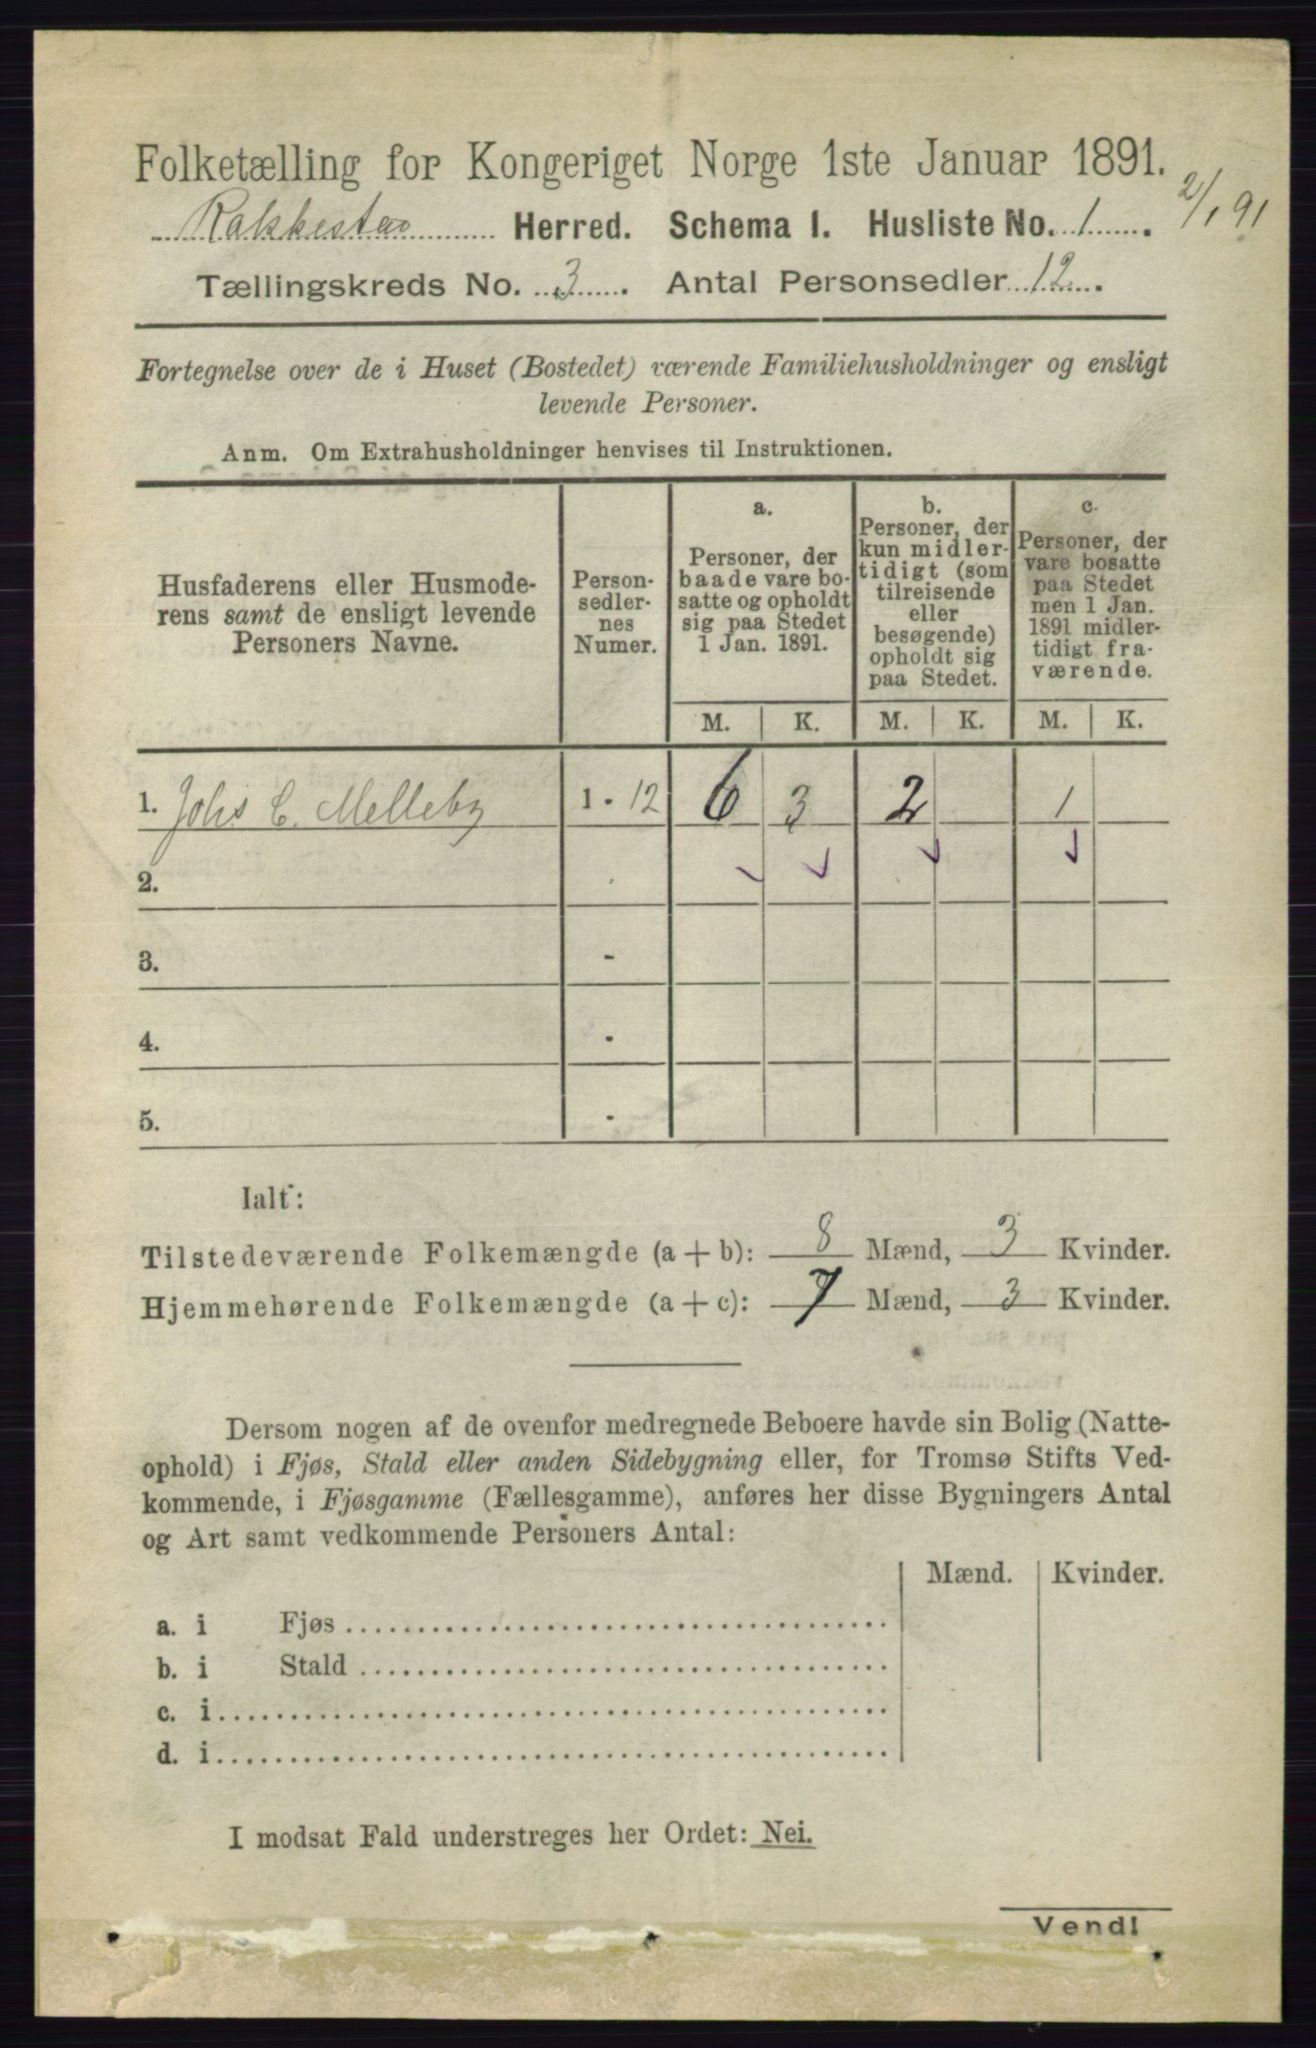 Folketælling for Kongeriget Norge 1ste Januar 1891.
2/1 91
Rakkestad Herred. Schema I. Husliste No. 1.
Tællingskreds No. 3. Antal Personsedler 12.
Fortegnelse over de i Huset (Bostedet) værende Familiehusholdninger og ensligt
levende Personer.
Anm. Om Extrahusholdninger henvises til Instruktionen.
Husfaderens eller Husmode-
rens samt de ensligt levende
Personers Navne.
Person-
sedler-
nes
Numer.
a.
Personer, der
baade vare bo-
satte og opholdt
sig paa Stedet
1 Jan. 1891.
b.
Personer, der
kun midler-
tidigt (som
tilreisende
eller
besøgende)
opholdt sig
paa Stedet.
c.
Personer, der
vare bosatte
paa Stedet
men 1 Jan.
1891 midler-
tidigt fra-
værende.
M. K. M. K. M. K.
1. Johs C. Melleby 1 - 12 6 3 2 1
2.
3. -
4. -
5. -
Ialt:
Tilstedeværende Folkemængde (a + b): 8 Mænd, 3 Kvinder.
Hjemmehørende Folkemængde (a + c): 7 Mænd, 3 Kvinder.
Dersom nogen af de ovenfor medregnede Beboere havde sin Bolig (Natte-
ophold) i Fjøs, Stald eller anden Sidebygning eller, for Tromsø Stifts Ved-
kommende, i Fjøsgamme (Fællesgamme), anføres her disse Bygningers Antal
og Art samt vedkommende Personers Antal:
Mænd. Kvinder.
a. i Fjøs
b. i Stald
c. i
d. i
I modsat Fald understreges her Ordet: Nei.
Vend!